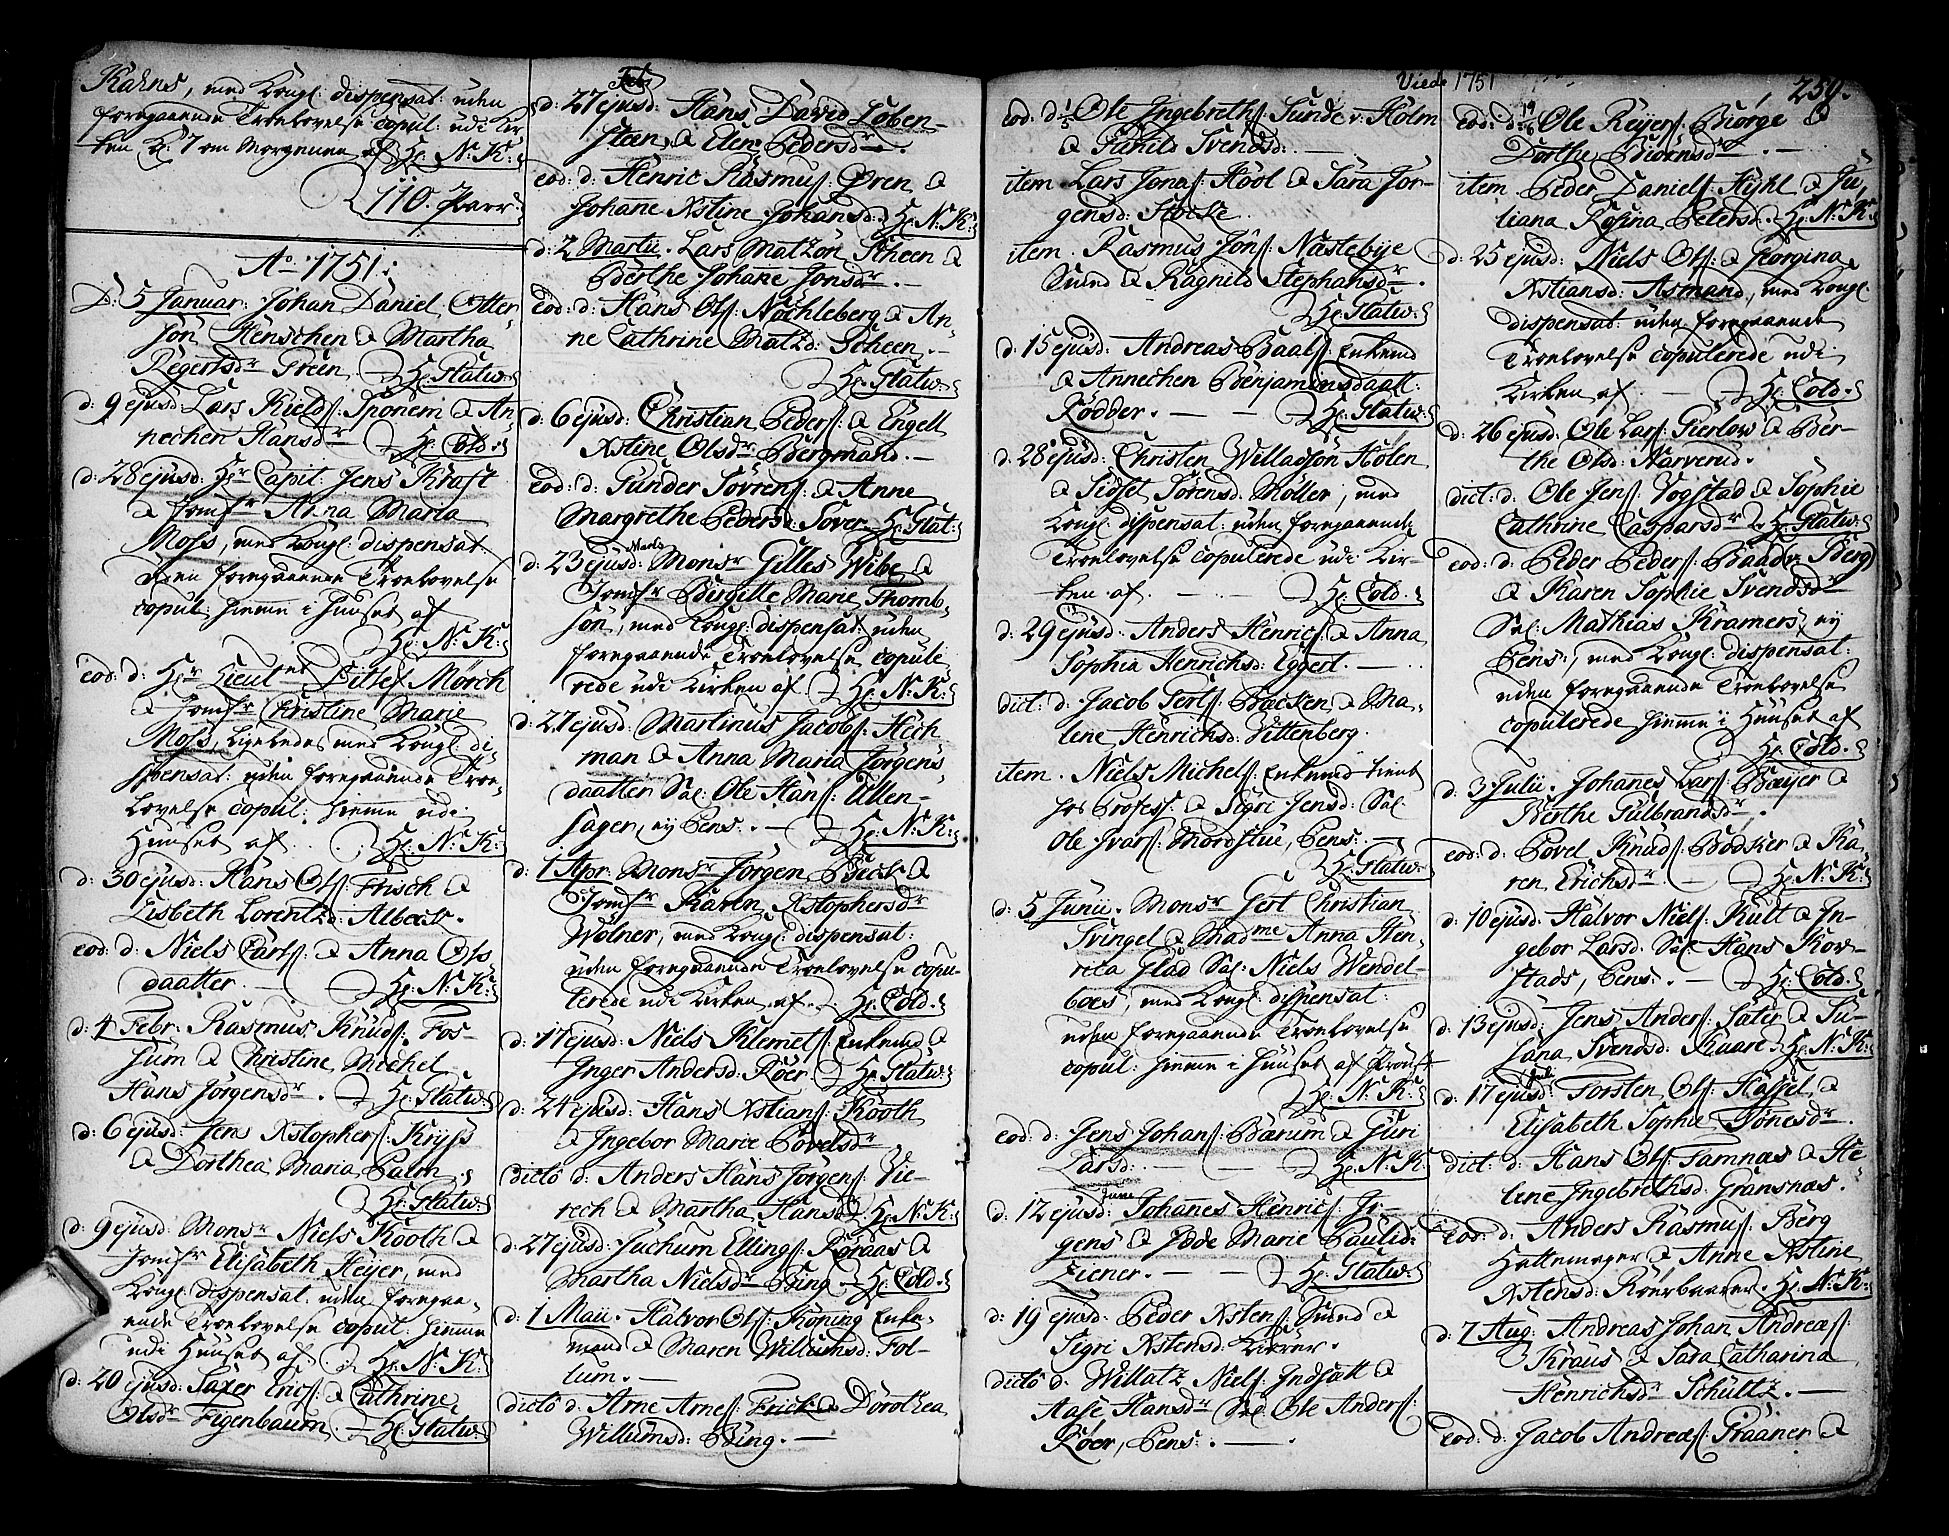 Kahns, med Kongl: dispensat: uden
foregaaende Troelovelse copul: udi Kir-
ken Kl: 7 om Morgenen af Hr: N: K:
110. Parr:
Ao. 1751:
D: 5 Januar: Johan Daniel Otter-
søn Henschen & Martha
Regertsdr Green Hr: Statw:
d: 9 ejusd: Lars Kields: Sponem & An-
nechen Hansdr Hr: Cold:
d: 28 ejusd: Hr Capit: Jens Kraft
& Jomfr Anna Maria
Moss, med Kongl: dispensat:
uden foregaaende Troelovelse
copul: hiemme i Huuset af
Hr: N: K:
eod: d: Hr Lieutnt Ditlef Mørch
& Jomfr Christine Marie
Moss, ligeledes med Kongl: di-
spensat: uden foregaaende Troe-
lovelse copul: hiemme udi
Huuset af. Hr: N: K:
d: 30 ejusd: Hans Ols: Frisch &
Lisbeth Lorentzd: Albeck.
eod: d: Niels Carls: & Anna Ols
daatter. Hr: N: K:
d: 4 Febr: Rasmus Knuds: Fos-
sum & Christine Mechel
Hans Jørgensdr. Hr: Statw:
d: 6 ejusd: Jens Xstophers: Kryss
& Dorthea Maria Palm
Hr: Statw:
d: 9 ejusd: Monsr Niels Kooth &
Jomfr Elisabeth Heyer, med
Kongl: dispensat: uden foregaa-
ende Troelovelse copul: hiemme
udi Huuset af Hr: N: K:
d: 20 ejusd: Saxer Erics: & Cathrine
Olsdr Figenbaum Hr: Statw:
Feb:
d: 27 ejusd: Hans David Løben-
steen & Elen Pedersdr.
eod: d: Henric Rasmus: Øren &
Johane Xstine Johansd: Hr: N: K:
d: 2 Martii. Lars Matzøn Skeen &
Berthe Johane Jonsdr.
eod: d: Hans Ols: Nøchleberg & An-
ne Cathrine Matzd: Scheen.
Hr: Statw:
d: 6 ejusd: Christian Peders: & Engell
Xstine Olsdr Bergmand.
eod: d: Gunder Sørrens: & Anne
Margrethe Pedersd: Sover Hr: Stat:
Martii
d: 23 ejusd: Monsr Gilles Wibe &
Jomfr Birgitte Marie Thomb-
søn, med Kongl: dispensat: uden
foregaaende Troelovelse copule
rede udi Kirken af Hr: N: K:
d: 27 ejusd: Martinus Jacobs: Heck
man & Anna Maria Jørgens-
daatter Sal: Ole Hans: Ullen-
sager, ey Pens:. Hr: N: K:
d: 1 Apr: Monsr Jørgen Beck &
Jomfr Karen Xstophersdr
Wølner, med Kongl: dispensat:
uden foregaaende Troelovelse copu-
lerede udi Kirken af. Hr: Cold:
d: 17 ejusd: Niels Klemets: Enkemd &
Inger Andersd: Røer Hr: Statw:
d: 24 ejusd: Hans Xstians: Kooth
& Ingebor Marie Povelsdr
dicto d: Anders Hans Jørgens: Vie-
rech & Martha Hansdr Hr: N: K:
d: 27 ejusd: Juchum Ellings: Røraas &
Martha Nielsdr Bing Hr: Cold:
d: 1 Maii. Halvor Ols: Køning Enke-
mand & Maren Willumsd: Fol-
lum.
dicto d: Arne Arnes: Frick & Dorothea
Willumsd: Bing.
Viede 1751
eod: d: 1/5 Ole Ingebreths: Sunde v: Holm
& Gunild Svendsd.
item. Lars Jonas: Hool & Sara Jør-
gensd: Stocke.
item. Rasmus Jøns: Nøstebye
Svend & Ragnild Stephansdr.
Hr: Statw:
d: 15 ejusd: Andreas Baals: Enkemd
& Annechen Benjaminsdaatt:
Rødder. Hr: Statw:
d: 28 ejusd: Christen Willadsøn Holen
& Sidsel Sørensd: Møller, med
Kongl: dispensat: uden foregaaende
Troelovelse copulerede udi Kir-
ken af. Hr: Cold:
d: 29 ejusd: Anders Henrics: & Anna
Sophia Henrichsd: Eggert.
dict: d: Jacob Gerts: Backen & Ma-
lene Henrichsd: Vittenberg.
item. Niels Michels: Enkemd tient
hos Profess: & Sigri Jensd: Sal:
Ole Ivars: Mordstue, Pens:
Hr: Statw:
d: 5 Junii. Monsr Gert Christian
Svingel & Madme Anna Hen-
rica Glad Sal: Niels Wendel-
boes, med Kongl: dispensat:
uden foregaaende Troelovelse
copul: hiemme i Huuset af Provst
Hr: N: K:
eod: d: Jens Johans: Bærum & Guri
Larsd: Hr: N: K:
Junii
d: 12 ejusd: Johannes Henrics: Ir-
gens & Bode Marie Paulsd:
Ziener. Hr: Statw:
d: 19 ejusd: Peder Xstens: Svend &
Sigri Xstensd: Kirrer.
dicto d: Willatz Niels: Indsatt &
Aase Hansdr Sal: Ole Anders:
Røer, Pens:.
259.
eod: d: 19/6 Ole Reyers: Biørge &
Dorthe Biørnsdr.
item Peder Daniels: Hyhl & Ju-
liana Rosina Petersd: Hr: N: K:
d: 25 ejusd: Niels Ols: & Georgina
Xstiansd: Asmand, med Kongl:
dispensat: uden foregaaende
Troelovelse copulerede udi
Kirken af. Hr: Cold:
d: 26 ejusd: Ole Lars: Gierlow & Ber-
the Olsd: Narverud.
dict: d: Ole Jens: Vogstad & Sophie
Cathrine Caspersdr Hr: Statw:
eod: d: Peder Peders: Baadr Berg
& Karen Sophie Svendsdr
Sal: Mathias Kramers, ey
Pens:, med Kongl: dispensat:
uden foregaaende Troelovelse
copulerede hiemme i Huuset af
Hr: Cold:
d: 3 Julii. Johanes Lars: Bøyer &
Berthe Gulbrandsdr.
eod: d: Povel Knuds: Bødker & Ka-
ren Erichsdr. Hr: N: K:
d: 10 ejusd: Halvor Niels: Kult & In-
gebor Larsd: Sal: Hans Kov-
stads, Pens:. Hr: Cold:
d: 13 ejusd: Jens Anders: Sater & Su-
sana Svendsd: Kaare. Hr: N: K:
Julii
d: 17 ejusd: Torsten Ols: Hassel &
Elisabeth Sophie Tønesdr.
dict: d: Hans Ols: Famnæs & He-
lene Ingebrethsd: Gransnæs.
eod: d: Anders Rasmus: Berg
Hattemager & Anne Xstine
Xstensd: Røerbaarer. Hr: N: K:
d: 7 Aug: Andreas Johan Andreæs:
Kraus & Sara Catharina
Henrichsdr Schultz.
eod: d: Jacob Andreæs: Praaner &